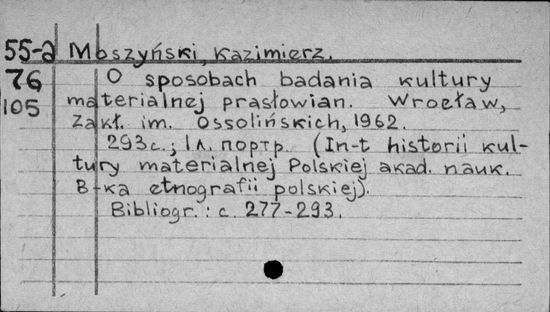 55-2 Moszyński, Kazimierz.
76 O sposobach badania kultury
105 materialnej prasłowian. Wrocław,
Zakł. im. Ossolińskich, 1962.
293 с.; 1 л. портр. (In-t historii kul-
tury materialnej Polskiej akad. nauk.
B-ka etnografii polskiej).
Bibliogr.: c. 277-293.